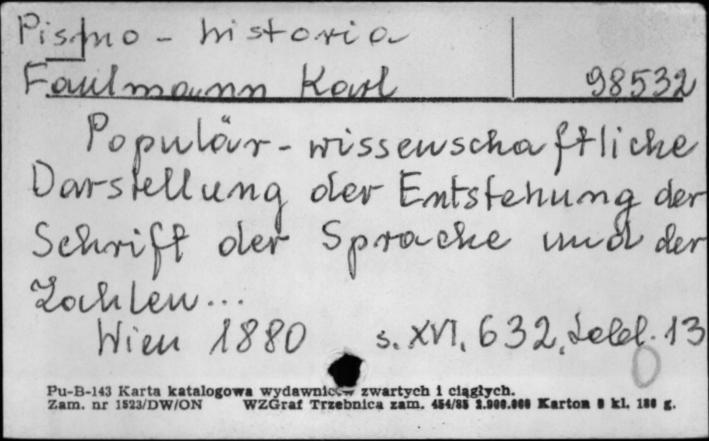 Pismo - historia
Faulmann Karl 98532
Populär-wissenschaftliche
Darstellung der Entstehung der
Schrift der Sprache und der
Zahlen...
Wien 1880 s. XVI, 632, 13
0
Pu-B-143 Karta katalogowa wydawnictw zwartych i ciągłych.
Zam. nr 1523/DW/ON WZGraf Trzebnica zam. 454/85 2.000.000 Karton kl. 180 g.